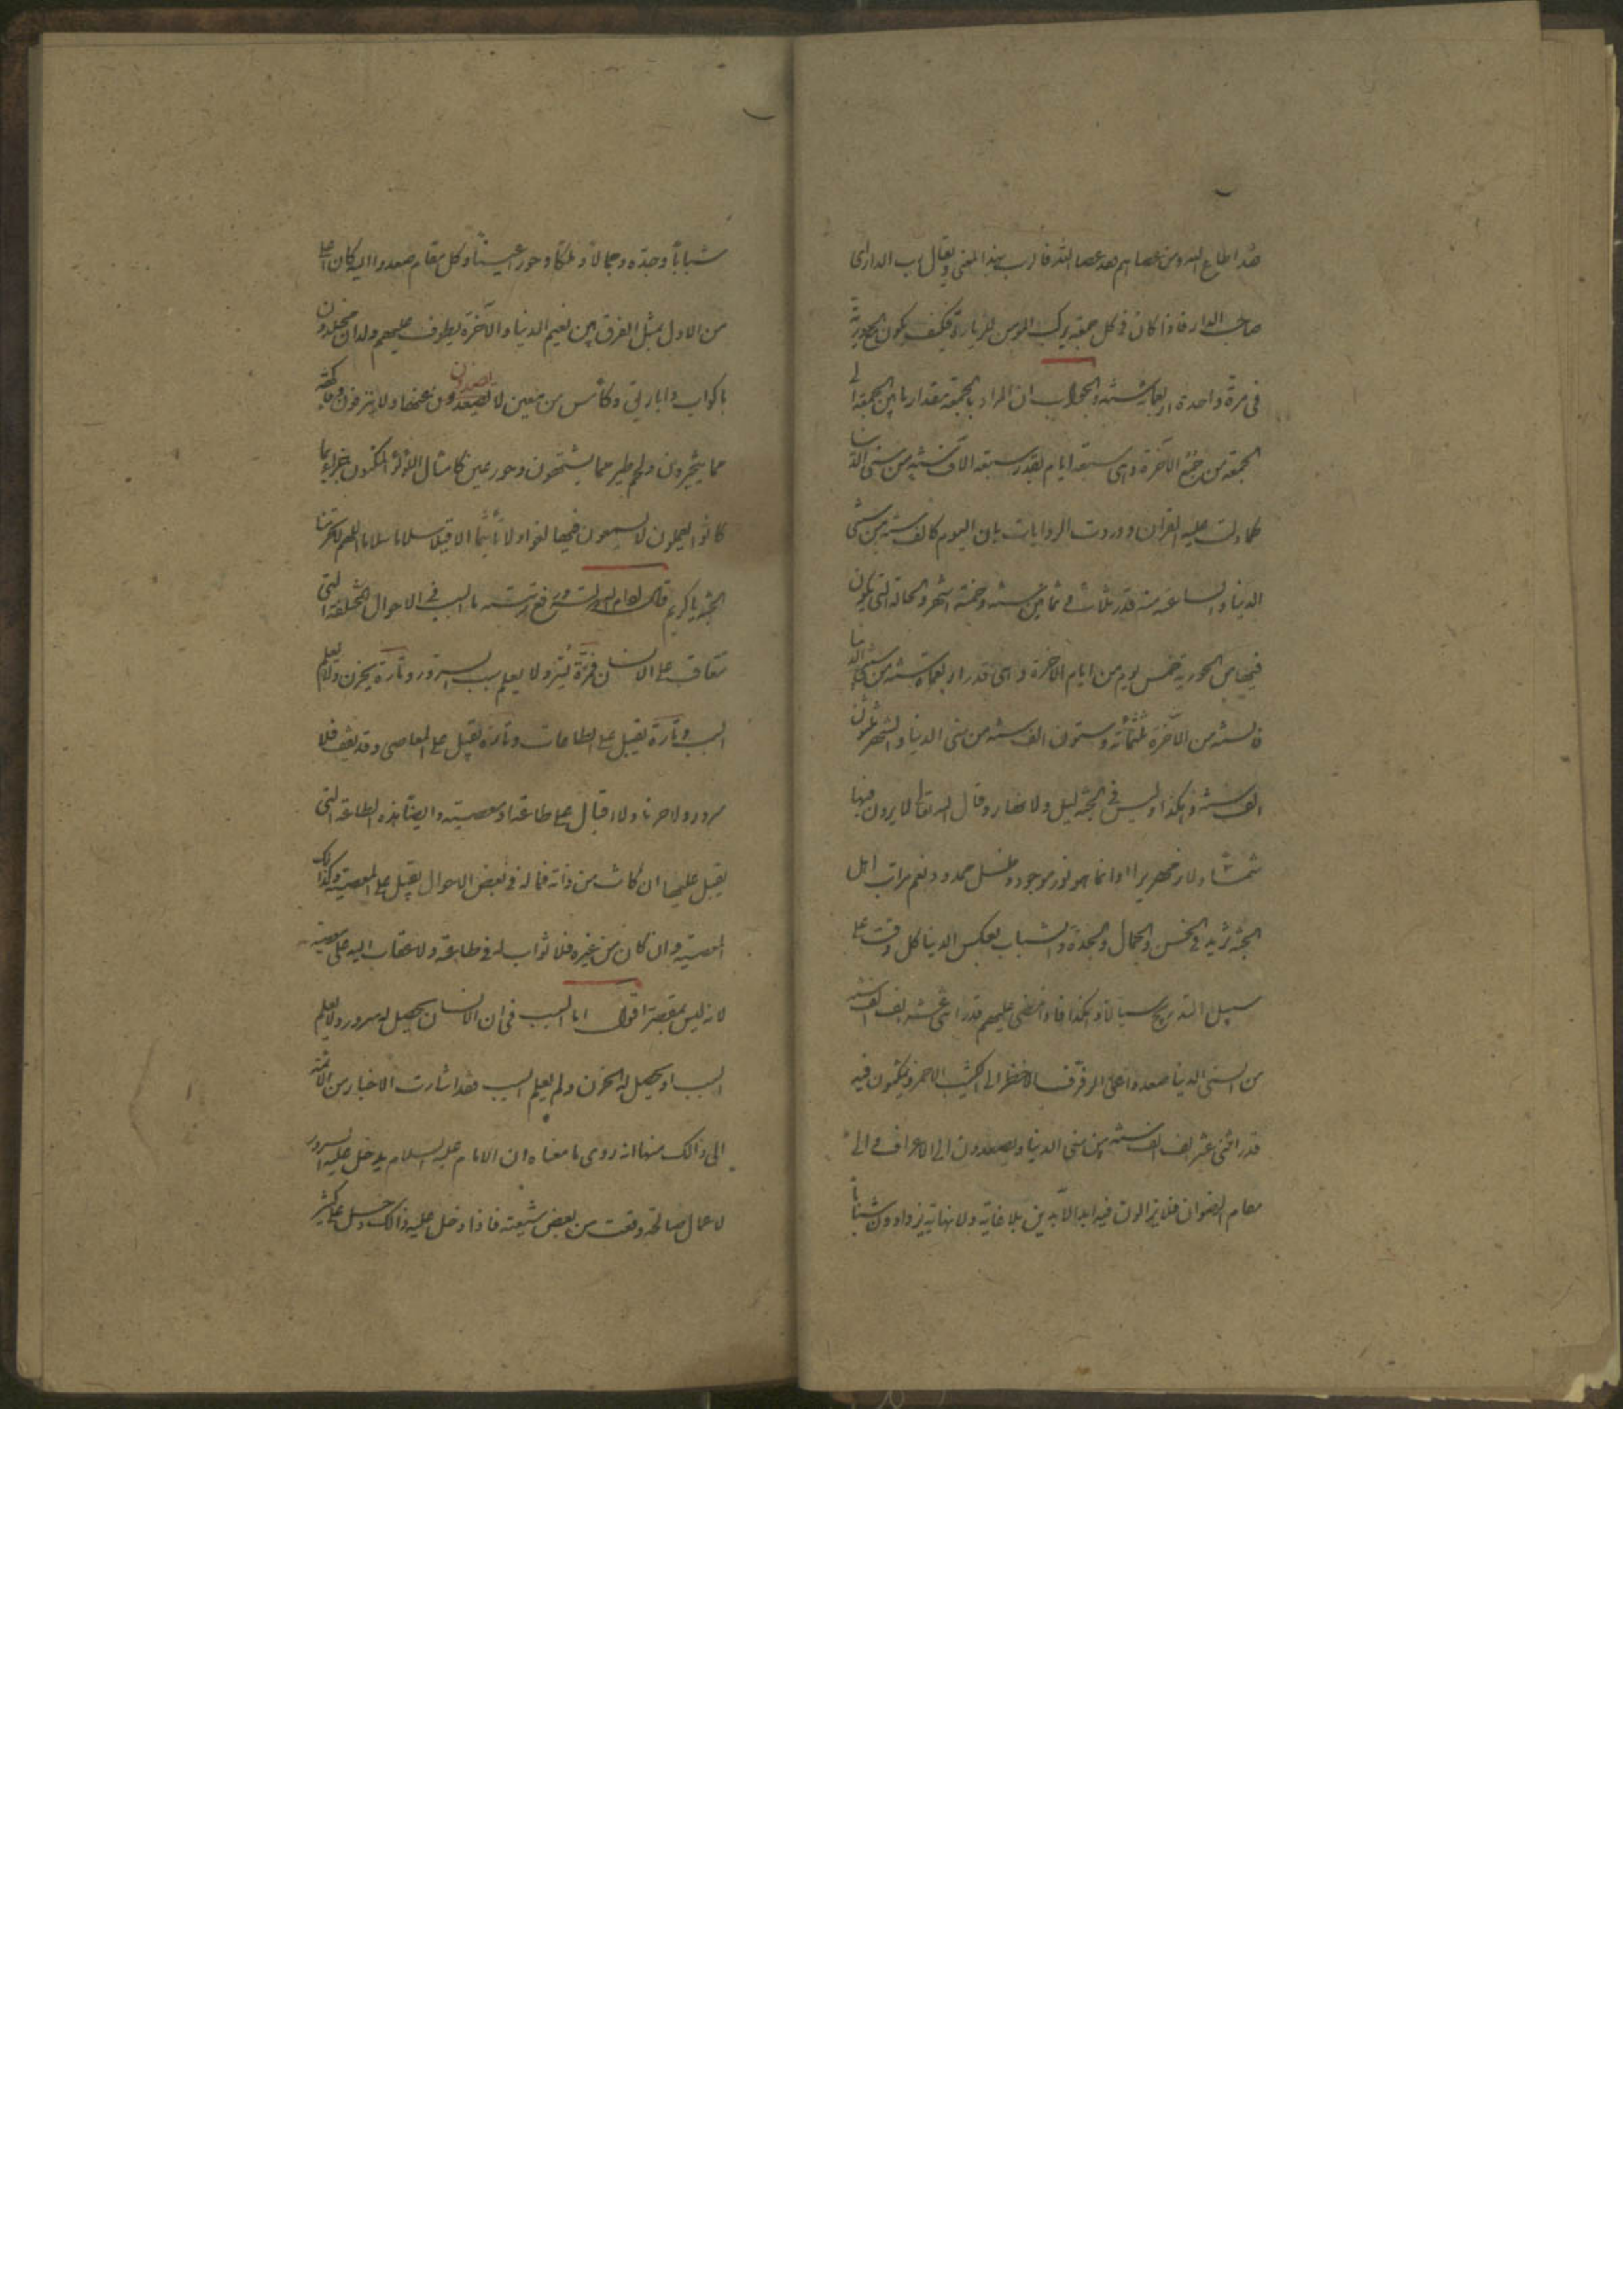 فقد اطاع الله ومن عصاهم فقد عصا الله فالرب بهذا المعنى ويقال رب الدار اى
صاحب الدار فاذا كان فى كل جمعة يركب المؤمن للزيارة فكيف يكون مع الحورية
فى مرة واحدة اربعمائة سنة والجواب ان المراد بالجمعة مقدار ما بين الجمعة الى
الجمعة من جمع الآخرة وهى سبعة ايام بقدر سبعة الاف سنة من سنى الدنيا
كما دلت عليه القران ووردت الروايات بان اليوم كالف سنة من سنى
الدنيا والساعة منه قدر ثلاث و ثمانين سنة وخمسة اشهر والحالة التى يكون
فيها مع الحورية خمس يوم من ايام الآخرة وهى قدر اربعمائة سنة من سنى الدنيا
فالسنة من الآخرة ثلثمائة وستون الف سنة من سنى الدنيا والشهر ثلثون
الف سنة وهكذا وليس فى الجنة ليل ولا نهار وقال الله تعالى لا يرون فيها
شمسا ولا زمهريرا وانما هو نور موجود وظل ممدود ونعم مراتب اهل
الجنة تزيد فى الحسن والجمال والجدة والشباب بعكس الدنيا كل وقت على
سبيل التدريج سيالا وهكذا فاذا مضى عليهم قدر اثنى عشر الف الف سنة
من السنى الدنيا صعدوا على الرفرف الاخضر الى الكثيب الاحمر ويمكثون فيه
قدر اثنى عشر الف الف سنة من سنى الدنيا ويصعدون الى الاعراف والى
مقام الرضوان فلا يزالون فيه ابد الآبدين بلا غاية ولا نهاية يزدادون شبابا
شبابا وجدة وجمالا وملكا وحورا عينا وكل مقام صعدوا اليه كان اعلى
من الاول بمثل الفرق بين نعيم الدنيا والآخرة يطوف عليهم ولدان مخلدون
باكواب واباريق وكأس من معين لا يصدعون عنها ولا ينزفون وفاكهة
مما يتخيرون ولحم طير مما يشتهون وحور عين كامثال اللؤلؤ المكنون جزاء بما
كانوا يعملون لا يسمعون فيها لغوا ولا تأثيما الا قيلا سلاما سلاما اللهم لا تحرمنا
الجنة يا كريم قال ادام الله ورفع رتبته ما السبب فى الاحوال المختلفة التى
تتعاقب على الانسان فمرة يسر ولا يعلم سبب السرور وتارة يحزن ولا يعلم
السبب وتارة يقبل على الطاعات وتارة يقبل على المعاصى وقد يقف فلا
سرور ولا حزنا ولا اقبال على طاعة او معصية وايضا هذه الطاعة التى
يقبل عليها ان كانت من ذاته فما له فى بعض الاحوال يقبل على المعصية وكذلك
المعصية وان كان من غيره فلا ثواب له فى طاعة ولا عقاب اليه على معصيته
لانه ليس بمقصر اقول اما السبب فى ان الانسان يحصل له سرور ولا يعلم
السبب او يحصل له الحزن ولم يعلم السبب فقد اشارت الاخبار من الائمة
الى ذالك منها انه روى ما معناه ان الامام عليه السلام يدخل عليه السرور
لاعمال صالحة وقعت من بعض شيعته فاذا دخل عليه ذالك دخل على كثير